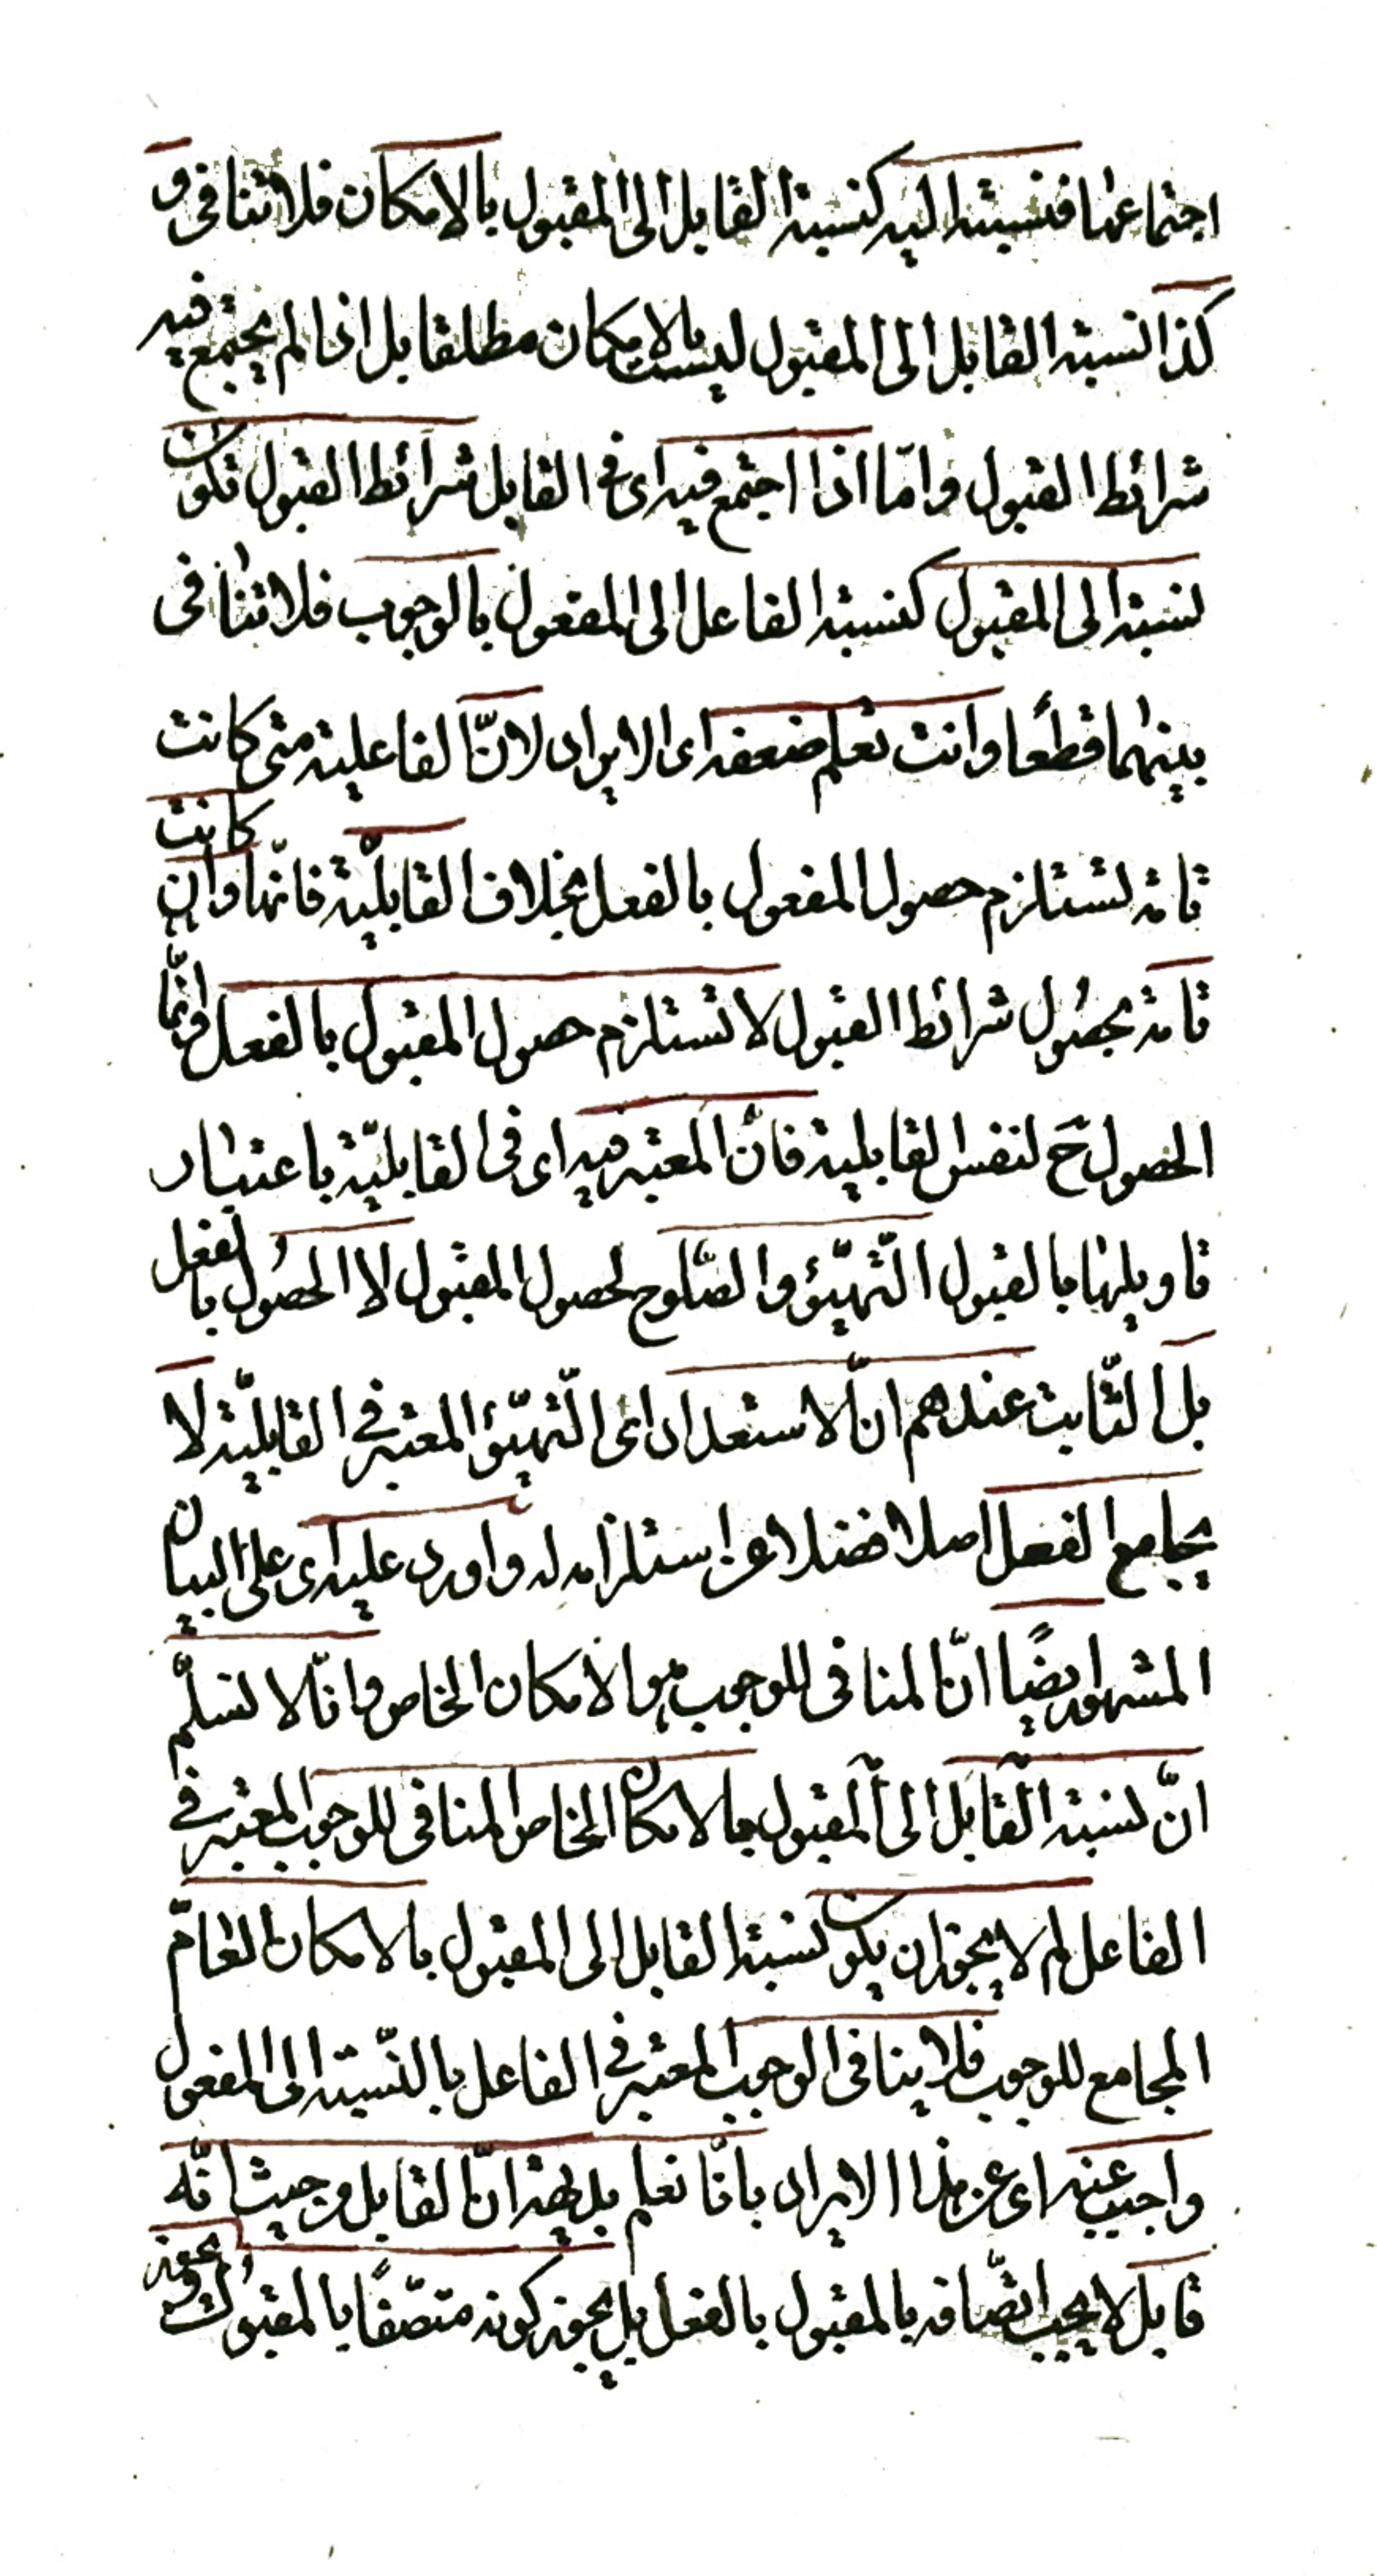 اجتماعها فنسبته اليه كنسبة القابل الى المقبول بالامكان فلا تنافى و
كذا نسبة القابل الى المقبول ليست بالامكان مطلقا بل اذا لم يجتمع فيه
شرائط القبول وامّا اذا اجتمع فيه اى فى القابل شرائط القبول تكون
نسبته الى المقبول كنسبة الفاعل الى المفعول بالوجوب فلا تنافى
بينهما قطعًا وانت تعلم ضعفه اى الايراد لانّ الفاعلية متى كانت
تامة تستلزم حصول المفعول بالفعل بخلاف القابليّة فانّها وان كانت
تامة بحصول شرائط القبول لا تستلزم حصول المقبول بالفعل وانّما
الحصول ح لنفس القابلية فانّ المعتبر فيه اى فى القابليّة باعتبار
تاويلها بالقبول التّهيّؤ والصّلوح لحصول المقبول لا الحصُول بالفعل
بل الثّابت عندهم انّ الاستعداد اى التّهيّؤ المعتبر فى القابليّة لا
يجامع الفعل اصلا فضلا عن استلزامه له واورد عليه اى على البيان
المشهور ايضًا انّ المنافى للوجوب هو الامكان الخاص وانّا لا نسلّم
انّ نسبة القابل الى المقبول بالامكان الخاص المنافى للوجوب المعتبر فى
الفاعل لم لا يجوز ان يكون نسبة القابل الى المقبول بالامكان العامّ
المجامع للوجوب فلا ينافى الوجوب المعتبر فى الفاعل بالنّسبة الى المفعول
واجيب عنه اى عن هذا الايراد بانّا نعلم بديهة انّ القابل من حيث انّه
قابل لا يجب اتّصافه بالمقبول بالفعل بل يجوز كونه متصّفًا بالمقبول ويجوز